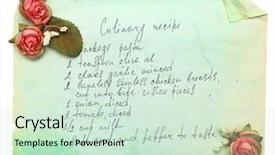 Culinary recipe
1 package pasta
1 teaspoon olive oil
2 cloves garlic minced
2 boneless skinless chicken breasts,
cut into bite-size pieces
1 onion, diced
1 tomato, diced
1/2 cup milk
and pepper to taste
Sample
Templates for PowerPoint